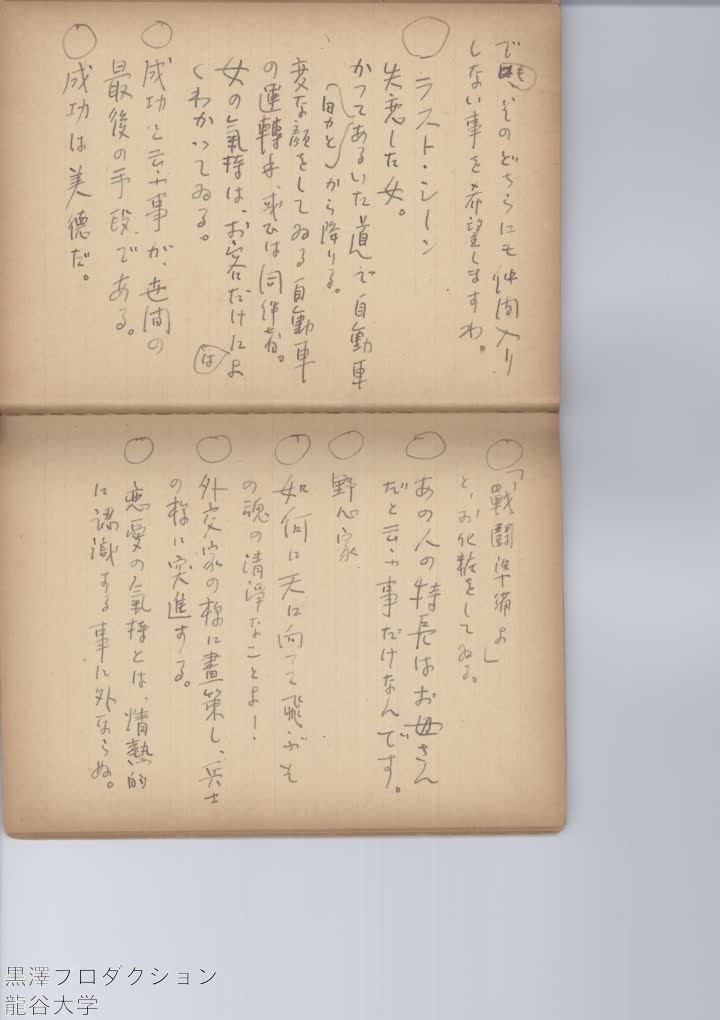 でも、そのどちらにも仲間入り
しない事を希望しますわ。
○ラスト・シーン
失恋した女。
かつてあるいた道で自動車
(男と)から降りる。
変な顔をしてゐる自動車
の運轉手、或ひは同伴者。
女の氣持は、お客だけによ
くわかってゐる。
は
○成功と云ふ事が、世間の
最後の手段である。
○成功は美徳だ。
○「戰鬪準備よ」
と、お化粧をしてゐる。
○あの人の特長はお母さん
だと云ふ事だけなんです。
○野心家
○如何に天に向って飛ぶも
の魂の清淨なことよ!
○外交家の様に畫策し、兵士
の様に突進する。
○恋愛の氣持とは、情熱的
に認識する事に外ならぬ。
黒澤プロダクション
龍谷大学